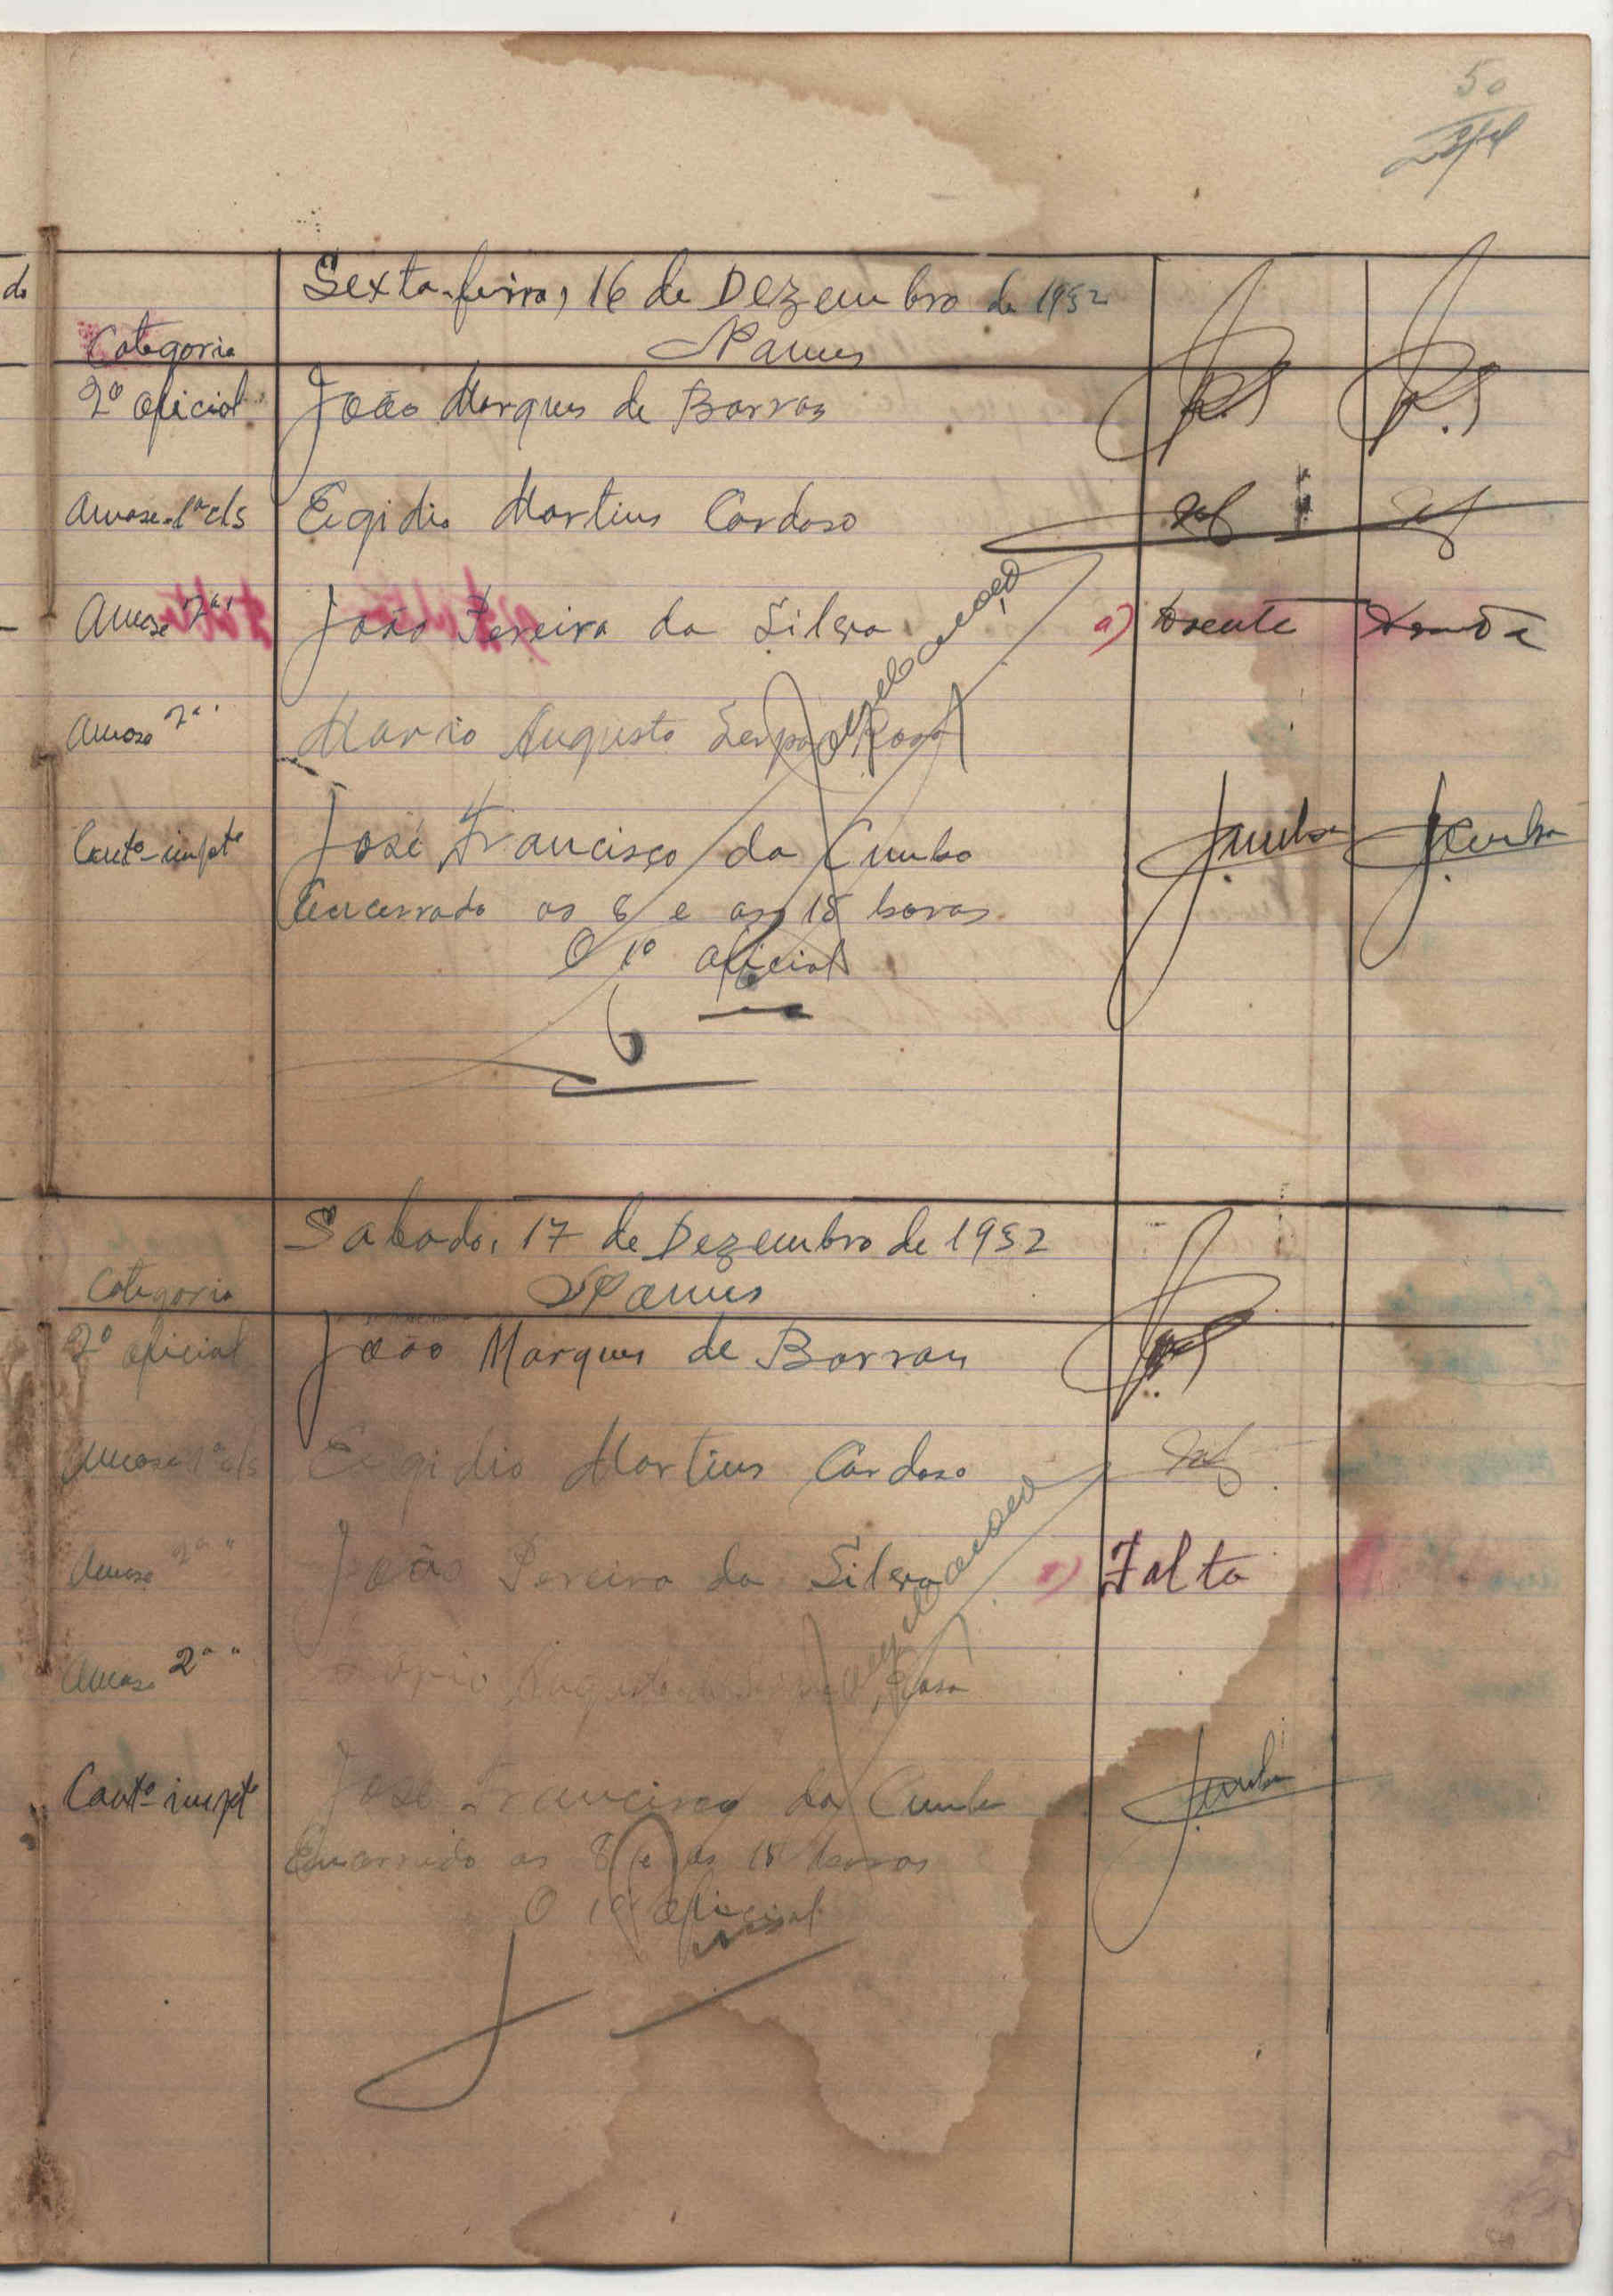 50
do
Sexta-feira, 16 de Dezembro de 1952
Categoria Nomes
2º oficial João Marques de Barros
1ª cls Egidio Martins Cardoso
2ª " João Pereira da Silva a) Doente Doente
2ª " Mario Augusto Serpa Rosa
José Francisco da Cunha JCunha JCunha
Encerrado as 8 e as 18 horas
O 1º oficial
Sabado, 17 de Dezembro de 1952
Categoria Nomes
2º oficial João Marques de Barros
1ª cls Egidio Martins Cardoso
2ª " João Pereira da Silva a) Falta
2ª " Mario Augusto Rosa
José Francisco da Cunha JCunha
Encerrado as 8 e as 18 horas
O 1º oficial